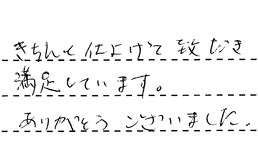 きちんと仕上げて致だき
満足しています。
ありがとうございました.